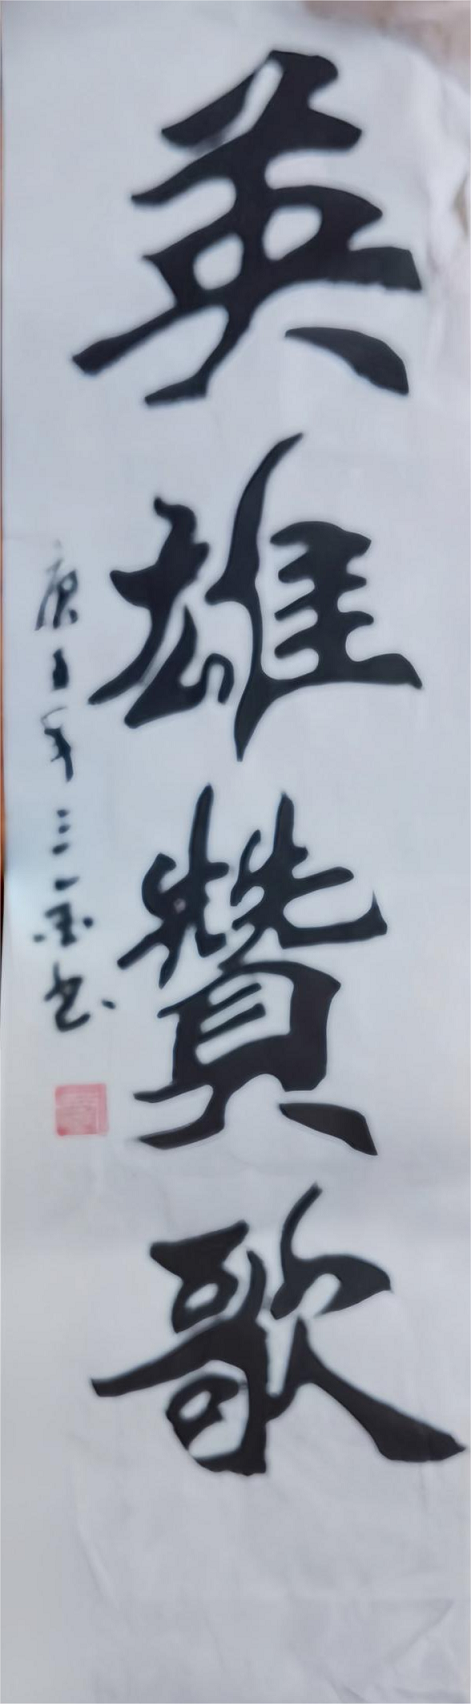 英雄贊歌
庚子年三一墨书